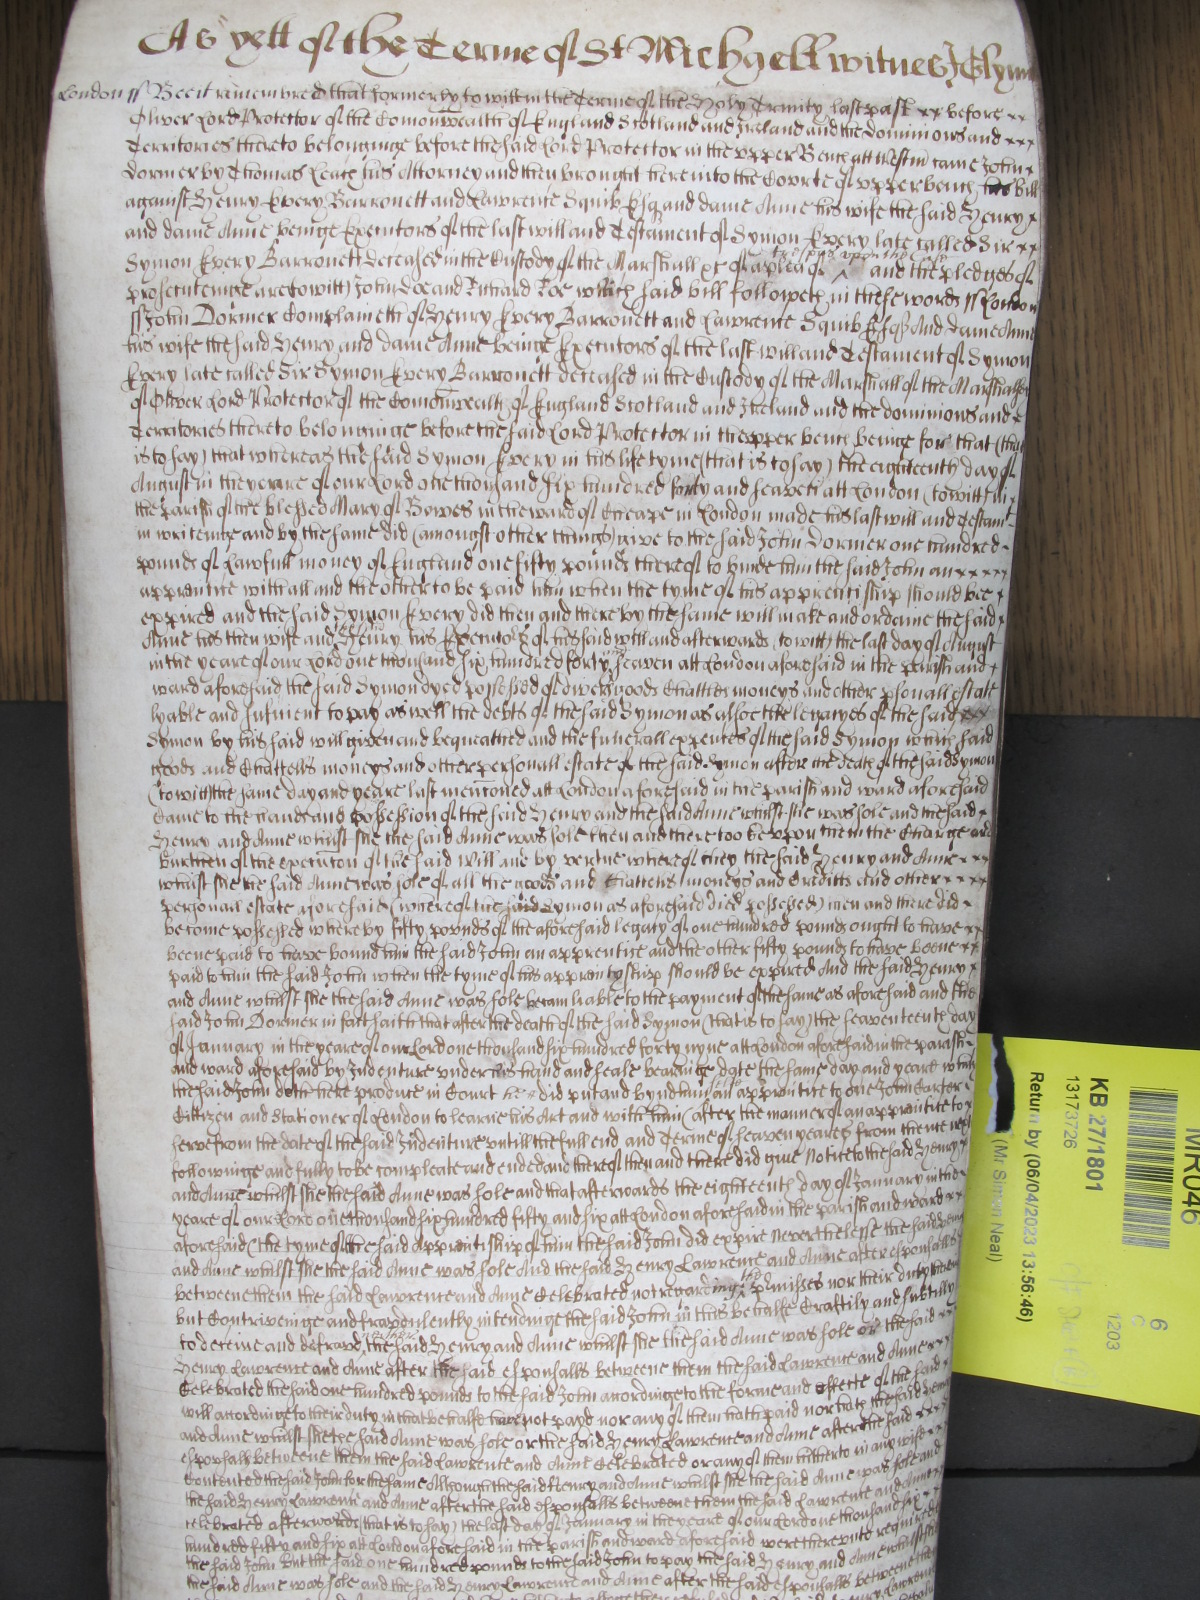 As yett of the Terme of St Michaell witnes J Glynn
London ss Bee it remembred that formerly to witt in the Terme of the Holy Trinity last past xx before xx
Oliver Lord Protector of the Comonwealth of England Scotland and Ireland and the dominions and xxx
Territories thereto belonginge before the said Lord Protector in the upper Bench att Westm came John
dormer by Thomas Leach his Attorney and then brought here into the Courte of upper bench his bill
against Henry Every Barronett and Lawrence Squib Esq and dame Anne his wife the said Henry x
and dame Anne beinge Executors of the last will and Testament of Symon Every late called Sir xx
trespas upon the Case
Symon Every Barronett deceased in the Custody of the Marshall xc of a plea of ^ and the pledges of
prosecuteinge are towitt John doe and Richard Roe which said bill followeth in these words ss London
ss John Dormer Complaineth of Henry Every Barronett and Lawrence Squib Esq And dame Anne
his wife the said Henry and dame Anne beinge Executors of the last will and Testament of Symon
Every late called Sir Symon Every Barronett deceased in the Custody of the Marshall of the Marshalsey
of Oliver Lord Protector of the Comonwealth of England Scotland and Ireland and the dominions and
Territories thereto belonginge before the said Lord Protector in the upper bench beinge for that (that
is to say) that whereas the said Symon Every in his life tyme (that is to say) the eighteenth day of
August in the yeare of our Lord one thousand six hundred forty and seaven att London (towitt) in
the parish of the blessed Mary of Bowes in the ward of Cheape in London made his last will and Testamt
in writeinge and by the same did (amongst other things) give to the said John Dormer one hundred
pounds of Lawfull money of England one fifty pounds thereof to binde him the said John an xxxxx
apprentice withall and the other to be paid him when the tyme of his apprentiship should bee x
expired and the said Symon Every did then and there by the same will make and ordaine the said
Anne his then wife and Henry his Executors of his said will and afterwards (to witt) the last day of August
in the yeare of our Lord one thousand six hundred forty seaven att London aforesaid in the parish and
ward aforesaid the said Symon dyed possessed of divers goods Chattles moneys and other psonall estate
lyable and suficient to pay as well the debts of the said Symon as alsoe the legacyes of the said xxx
Symon by his said will given and bequeathed and the funerall expences of the said Symon which said
goods and Chattells moneys and other personall estate of the said Symon after the death of the said Symon
(towitt) the same day and yeare last mencioned att London aforesaid in the parish and ward aforesaid
Came to the hands and possession of the said Henry and the said Anne whilst she was sole and the said
Henry and Anne whilst she the said Anne was sole then and there tooke upon them the Charge and
burthen of the execucon of the said will and by vertue whereof they the said Henry and Anne xxx
whilst she the said Anne was sole of all the goods and Chattells moneys and Creditts and other xxxx
personall estate aforesaid (whereof the said Symon as aforesaid died possessed) then and there did
become possessed whereby fifty pounds of the aforesaid legacy of one hundred pounds ought to have xx
beene paid to have bound him the said John an apprentice and the other fifty pounds to have beene xx
paid to him the said John when the tyme of his apprentyship should be expired And the said Henry x
and Anne whilst she the said Anne was sole became liable to the payment of the same as aforesaid and the
said John Dormer in fact saith that after the death of the said Symon (that is to say) the seaventeenth day
of January in the yeare of our Lord one thousand six hundred forty nyne att London aforesaid in the parish
and ward aforesaid by Indenture under his hand and seale bearinge date the same day and yeare which
the said John doth here produce in Court did put and bynd him an apprentice to one John Carter
Cittizen and Stationer of London to learne his Art and with him (after the manner of an apprentice to
serve from the date of the said Indenture untill the full end and Terme of seaven yeares from thence next
followinge and fully to be compleate and ended and thereof then and there did give Notice to the said Henry
and Anne whilst she the said Anne was sole and that afterwards the eighteenth day of January in the
yeare of our Lord one thousand six hundred fifty and six att London aforesaid in the parish and ward xx
aforesaid (the tyme of the said Apprentiship of him the said John did expire Neverthelesse the said Henry
and Anne whilst she the said Anne was sole And the said Henry Lawrence and Anne after espousalls
betweene them the said Lawrence and Anne Celebrated not regardinge the pmisses nor their duty therein
but Contriveinge and fraudulently intendinge the said John in this behalfe Craftily and subtilly
to deceive and defraud the said Henry and Anne whilst she the said Anne was sole or the said
Henry Lawrence and Anne after the said espousalls betweene them the said Lawrence and Anne xxx
Celebrated the said one hundred pounds to the said John accordinge to the forme and effecte of the said
will accordinge to their duty in that behalfe have not payd nor any of them hath paid nor hath the said Henry
and Anne whilst she the said Anne was sole or the said Henry Lawrence and Anne after the said xxxx
espousalls betweene them the said Lawrence and Anne Celebrated or any of them hitherto in any wise
Contented the said John for the same Although the said Henry and Anne whilst she the said Anne was sole and
the said Henry Lawrence and Anne after the said espousalls betweene them the said Lawrence and Anne
celebrated afterwords (that is to say) the last day of January in the yeare of our Lord one thousand six xx
hundred fifty and six att London aforesaid in the parish and ward aforesaid were thereunto required
the said John But the said one hundred pounds to the said John to pay the said Henry and Anne whilst she
the said Anne was sole and the said Henry Lawrence and Anne after the said espousalls betweene them
MR046
KB 27/1801
13173726
Return by (06/04/2023 13:56:46)
(Mr Simon Neal)
6
C
1203